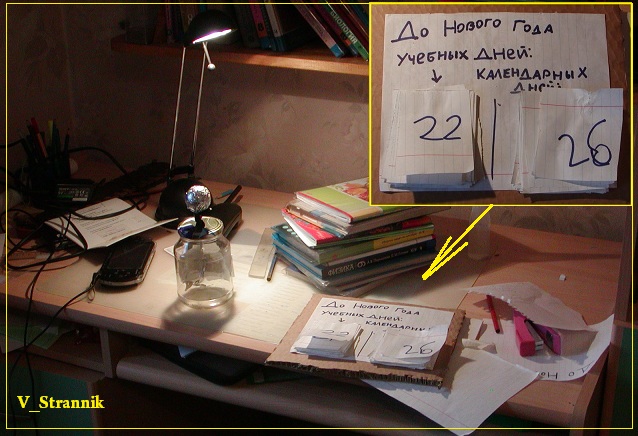 До Нового Года
учебных дней:
↓ календарных
дней:
22 | 26
БИОЛОГИЯ
ФИЗИКА
До Нового Года
учебных дней:
↓ календарны
22 26
До
Но
V_Strannik